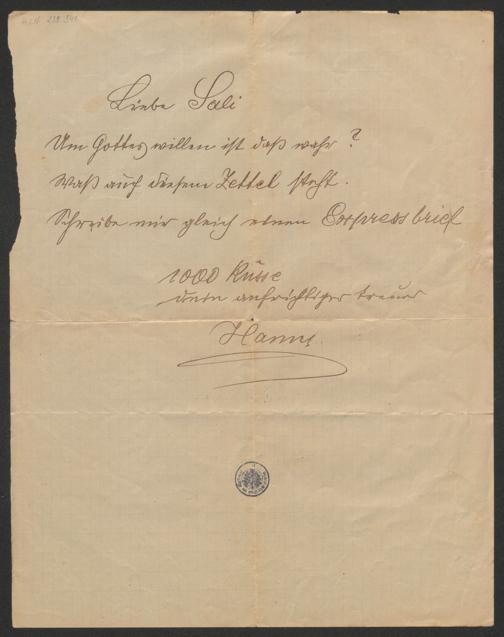 Liebe Sali
Um Gottes willen ist daß wahr?
Waß auf diesem Zettel steht.
Schreibe mir gleich einen Expressbrief
1000 Küsse
dein aufrichtiger treuer
Hanns.